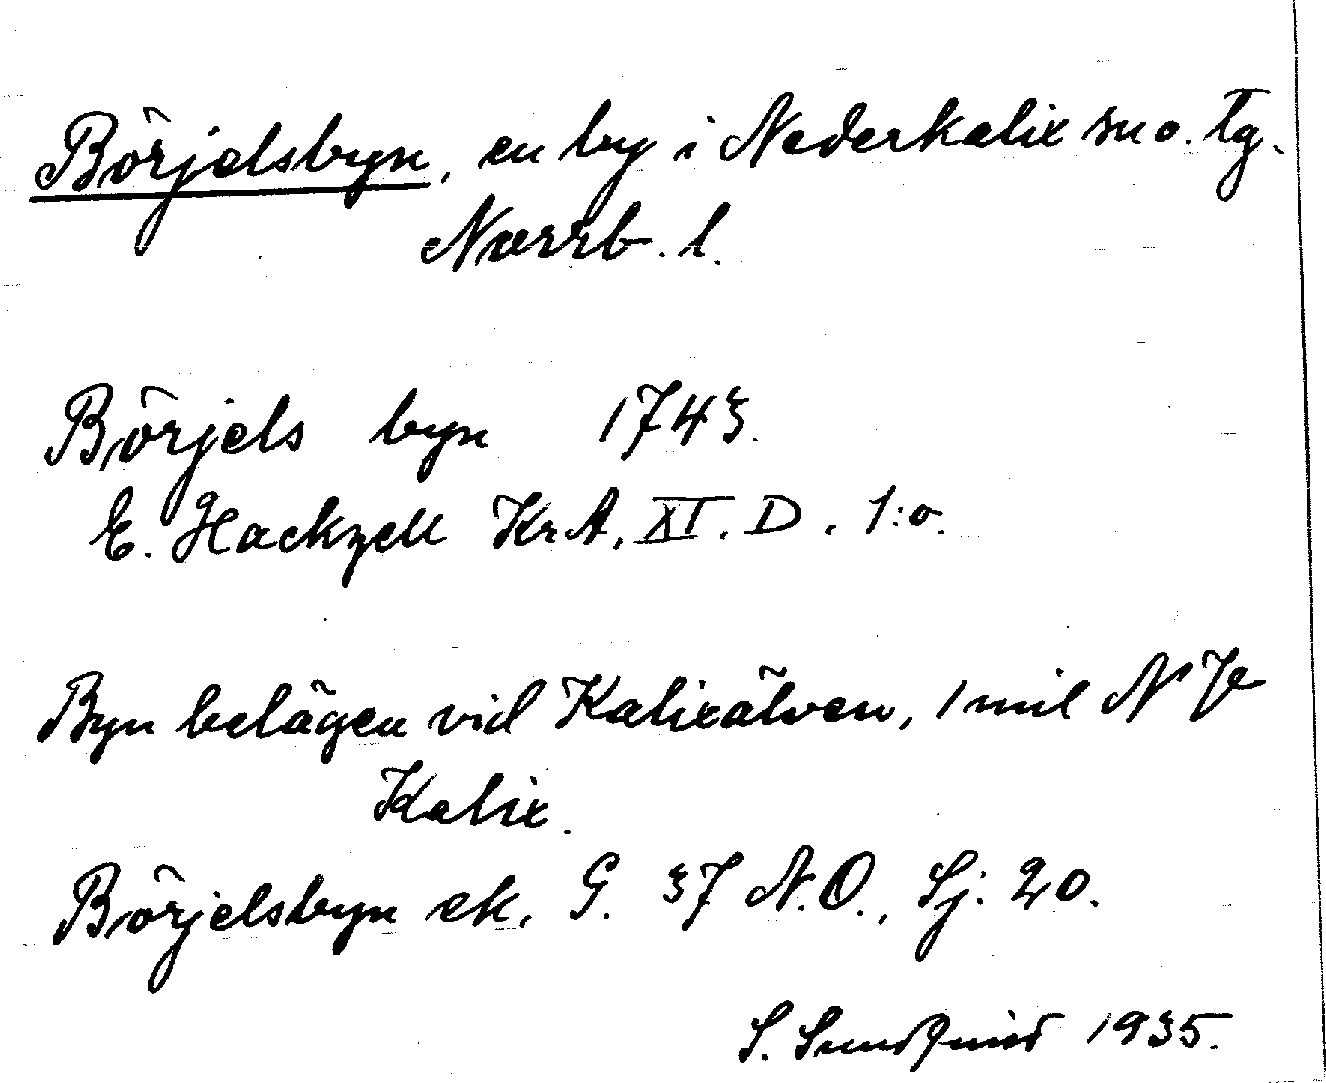 Börjelsbyn, en by i Nederkalix sn o. tg.
Norrb. l.
Börjels byn 1743.
E. Hackzell Kr. A, XI. D. 1:o.
Byn belägen vid Kalixälven, 1 mil N
Kalix.
Börjelsbyn ek. G. 37 N.O., Sj. 20.
S. Sundqvist 1935.